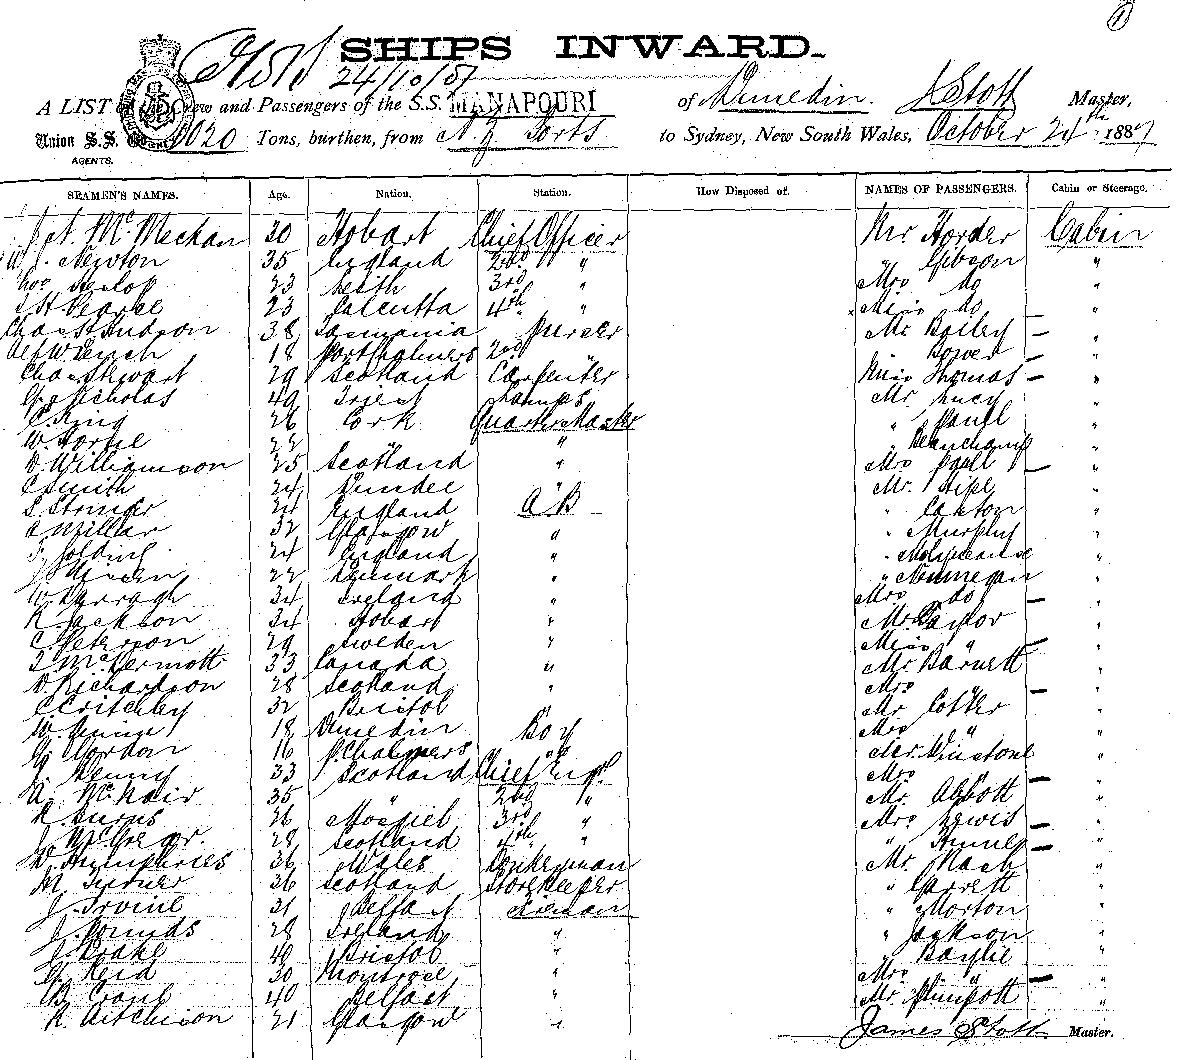 SHIPS INWARD.
24/10/87
A LIST of the Crew and Passengers of the S.S. MANAPOURI of Dunedin. J Stott Master,
Union S.S. 1020 Tons, burthen, from N. Z Ports to Sydney, New South Wales, October 24th 1887
AGENTS.
SEAMEN'S NAMES. Age. Nation. Station. How Disposed of. NAMES OF PASSENGERS. Cabin or Steerage.
McMechan 30 Hobart Chief Officer Mr. Horder Cabin
Newton 35 England 2nd " " Gibson "
Heslop 23 Leith 3rd " Mrs do "
Pearce 23 Calcutta 4th " Miss do "
Chas Hudson 38 Tasmania Purser Mr Bailey "
Alf Wrench 18 Port Chalmers 2nd " Bower "
Chas Stewart 29 Scotland Carpenter Miss Thomas "
Nicholas 49 Lamps Mr. Lucy "
C. King 26 Cork Quarter Master " Paull "
W. 22 " " Beauchamp "
D. Williamson 25 Scotland " Mrs Paull "
C Smith 24 Dundee " Mr. "
S. Stringer 24 England A B " Caxton "
Millar 32 Glasgow " " Murphy "
Golding 24 England " " Molyneaux "
22 Denmark " " Nunnegan "
W. Darragh 34 Ireland " Mrs do "
R. Jackson 34 Hobart " Mr Taylor "
C. Peterson 29 Sweden " Miss " "
McDermott 33 Canada " Mr Barnett "
D. Richardson 28 Scotland " Mrs " "
C Critchley 32 Bristol " Mr Cotter "
W. 18 Dunedin Boy Mrs " "
G. Gordon 16 P. Chalmers " Mr. Winstone "
J. Denny 33 Scotland Chief Eng. Mrs " "
A. McNair 35 " 2nd " Mr. Abbott "
R. Burns 26 Mosgiel 3rd " Mrs Lewis "
J. McGregor. 28 Scotland 4th " " "
W. Humphries 36 Wales Donkeyman Mr. Nash "
M. Turner 36 Scotland Storekeeper " Garrett "
J. Irvine 31 Belfast Fireman " Morton "
J. Pounds 28 Ireland " " Jackson "
J. Drake 40 Bristol " " Baylie "
Reid 30 Montrose " Mrs " "
B. 40 Belfast " Mr. "
R. Aitchison 21 Glasgow "
James Stott Master.